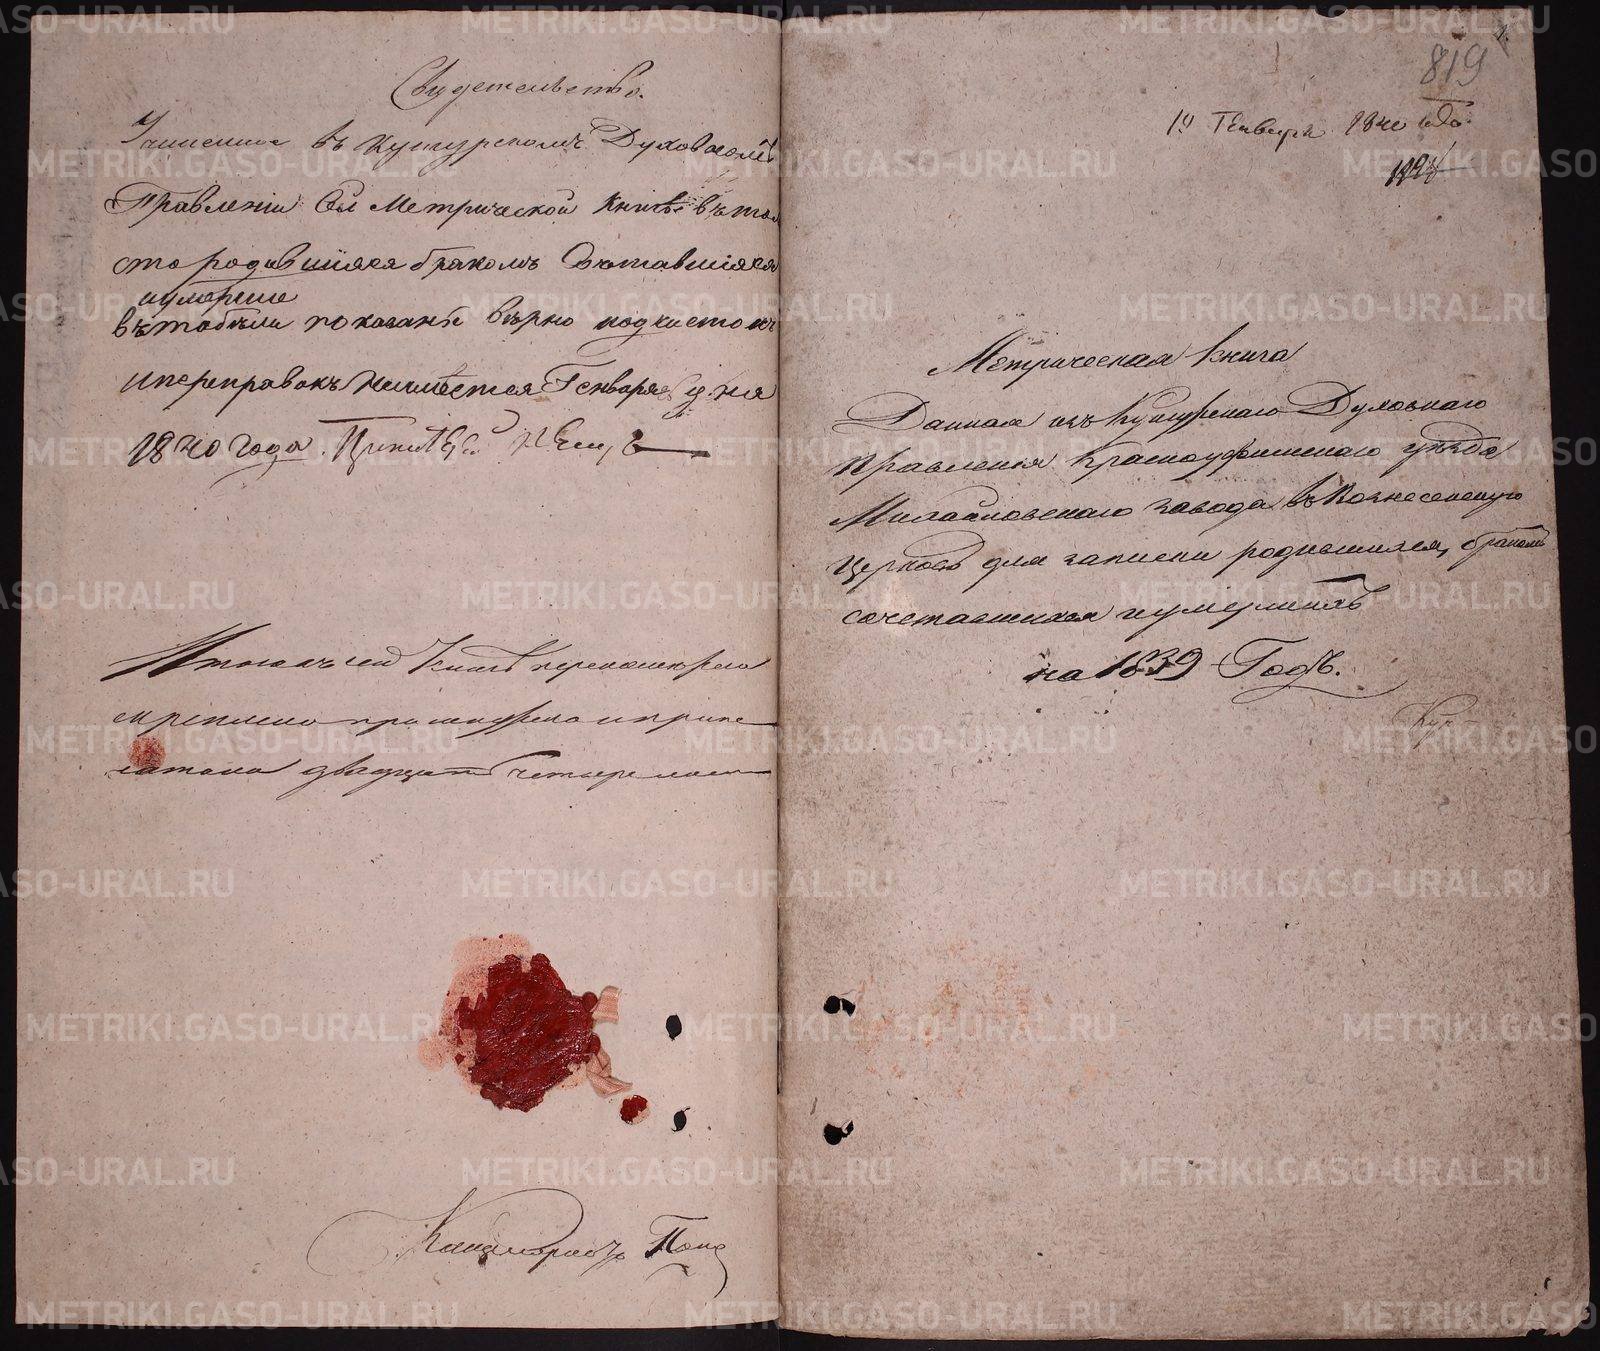 Свидетельство.
въ Кунгурскомъ Духовномъ
Правленіи Сей Метрической Книгѣ въ том
что родившіяся бракомъ Сочтавшіяся
иумершіе
въ показаны вѣрно подчистокъ
ипереправокъ неимѣется Генваря дня
1840 года.
Итого въ сей Книгѣ перенумеровано
скреплено прошнуровано ипропе
чатано двадцать четыре
819
1.
19 Генваря 1840 года.
Метрическая книга
Данная изъ Кунгурскаго Духовнаго
Правления Красноуфимскаго уѣзда
Михайловскаго завода въ Вознесенскую
Церковь для записки родившихся, бракомъ
сочетавшихся иумершихъ
на 1839 Годъ.
METRIKI.GASO-URAL.RU